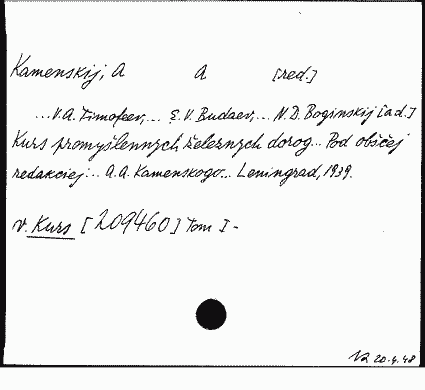 Kamenskij, A A [red.]
...V.A. Timofeev,... S.V. Budaev,... N.D. Boginskij [a d.]
Kurs promyšlennych železnych dorog... Pod obščej
redakciej... A.A. Kamenskogo... Leningrad, 1939.
v. Kurs [209460] Tom I-
20.4.48